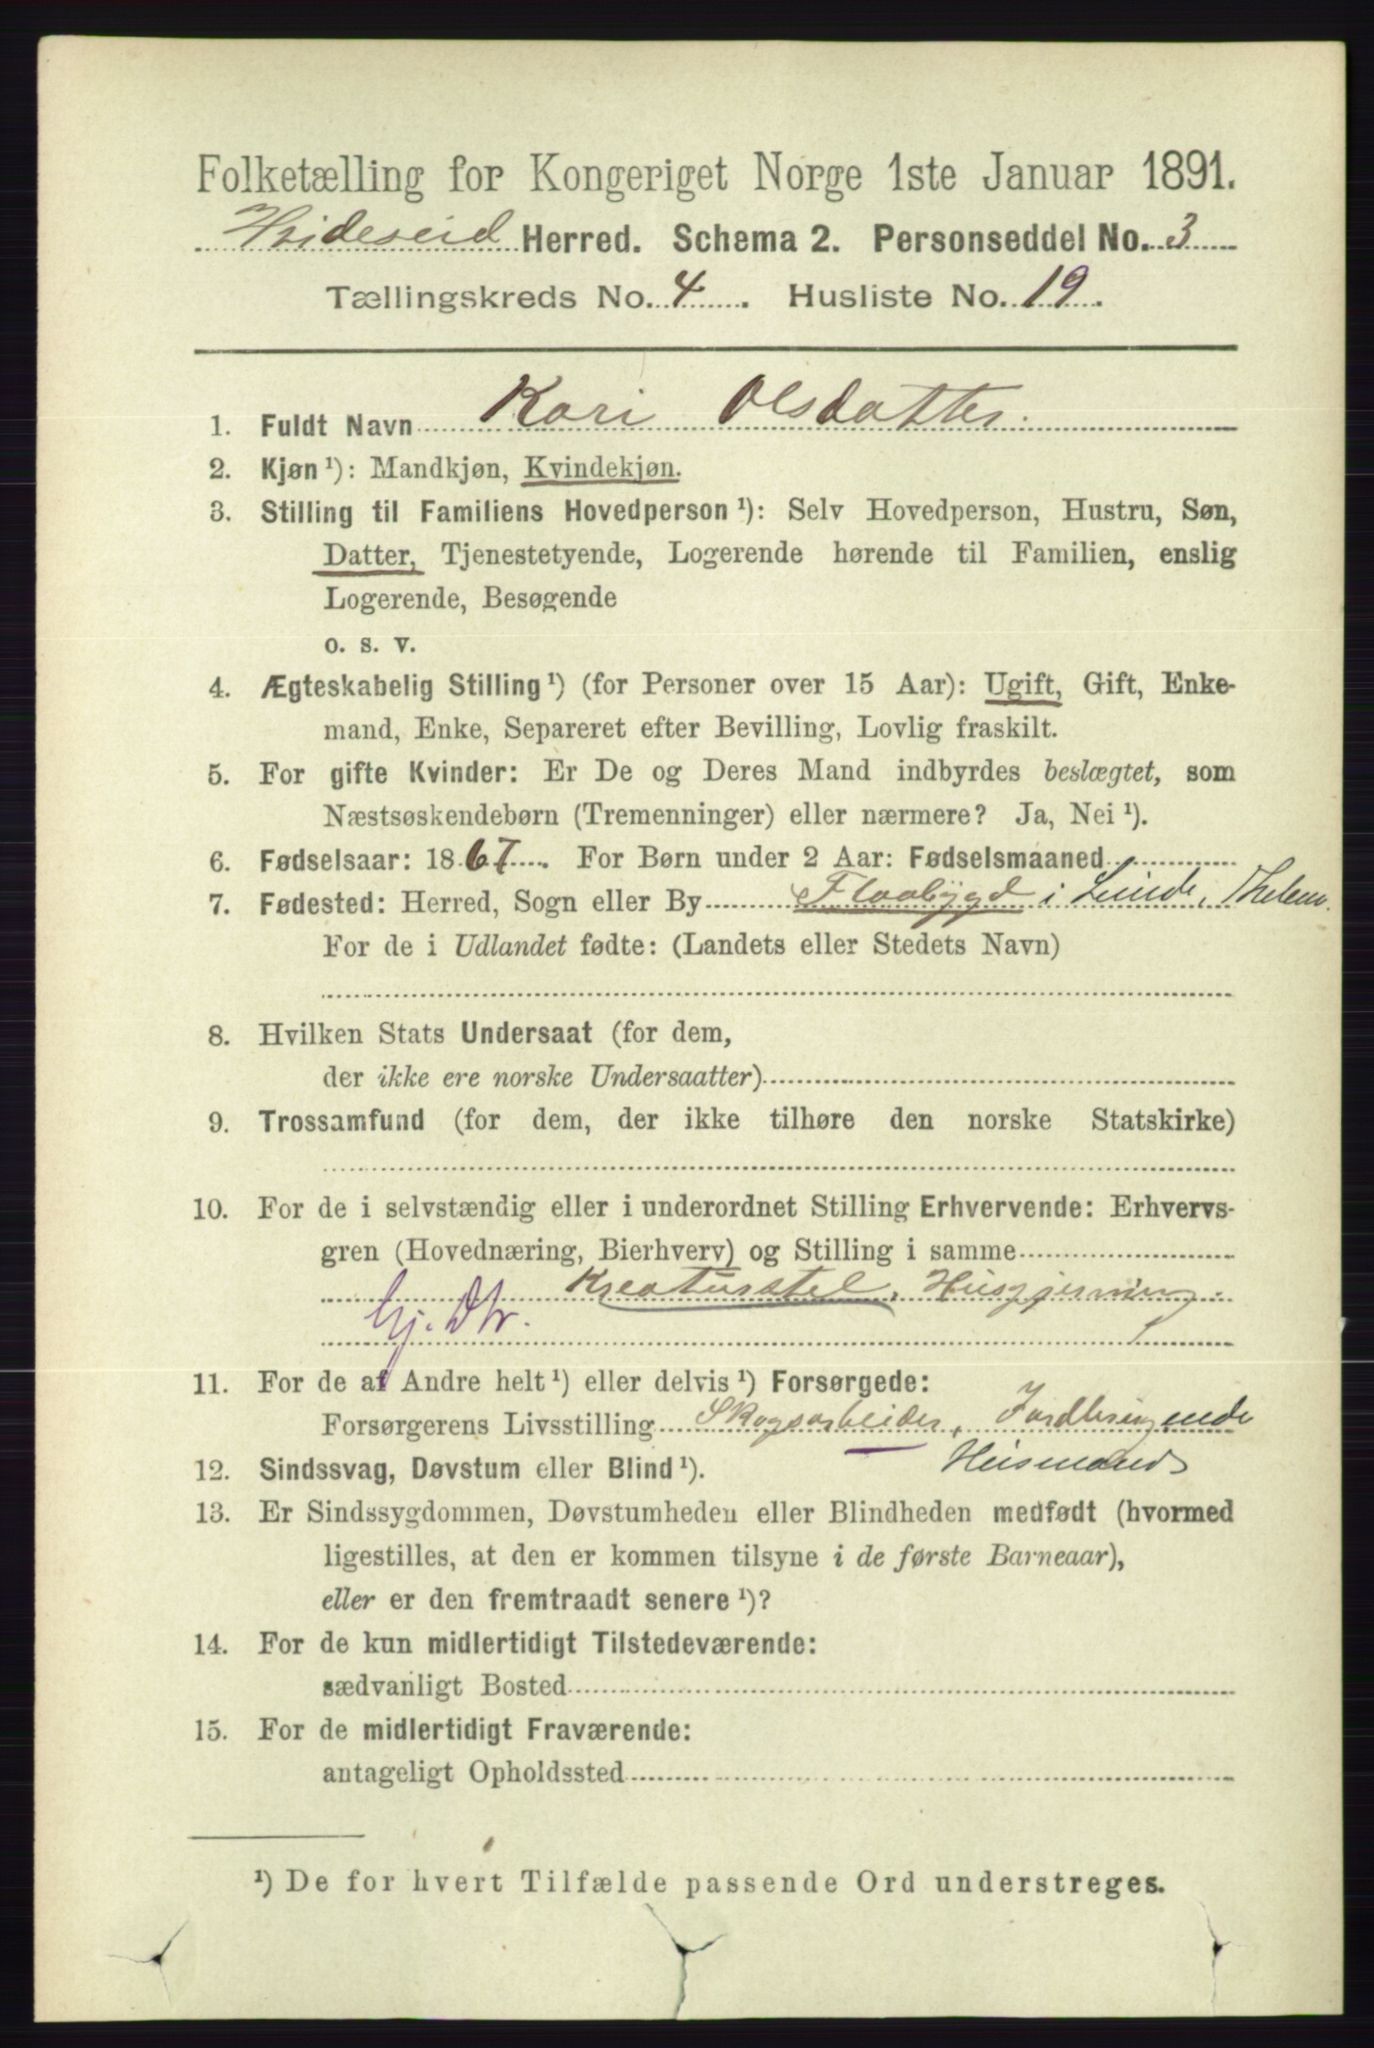 Folketælling for Kongeriget Norge 1ste Januar 1891.
Hvideseid Herred. Schema 2. Personseddel No. 3
Tællingskreds No. 4. Husliste No. 19.
1. Fuldt Navn Kari Olsdatter.
2. Kjøn ¹): Mandkjøn, Kvindekjøn.
3. Stilling til Familiens Hovedperson ¹): Selv Hovedperson, Hustru, Søn,
Datter, Tjenestetyende, Logerende hørende til Familien, enslig
Logerende, Besøgende
o. s. v.
4. Ægteskabelig Stilling ¹) (for Personer over 15 Aar): Ugift, Gift, Enke-
mand, Enke, Separeret efter Bevilling, Lovlig fraskilt.
5. For gifte Kvinder: Er De og Deres Mand indbyrdes beslægtet, som
Næstsøskendebørn (Tremenninger) eller nærmere? Ja, Nei ¹).
6. Fødselsaar: 1867. For Børn under 2 Aar: Fødselsmaaned
7. Fødested: Herred, Sogn eller By Flaabygd i Lunde, Thelem.
For de i Udlandet fødte: (Landets eller Stedets Navn)
8. Hvilken Stats Undersaat (for dem,
der ikke ere norske Undersaatter)
9. Trossamfund (for dem, der ikke tilhøre den norske Statskirke)
10. For de i selvstændig eller i underordnet Stilling Erhvervende: Erhvervs-
gren (Hovednæring, Bierhverv) og Stilling i samme
Kreaturstel, Husgjerning.
Gj. Dtr.
11. For de af Andre helt ¹) eller delvis ¹) Forsørgede:
Forsørgerens Livsstilling Skogsarbeider, Jordbrugende
Husmand
12. Sindssvag, Døvstum eller Blind ¹).
13. Er Sindssygdommen, Døvstumheden eller Blindheden medfødt (hvormed
ligestilles, at den er kommen tilsyne i de første Barneaar),
eller er den fremtraadt senere ¹)?
14. For de kun midlertidigt Tilstedeværende:
sædvanligt Bosted
15. For de midlertidigt Fraværende:
antageligt Opholdssted
¹) De for hvert Tilfælde passende Ord understreges.